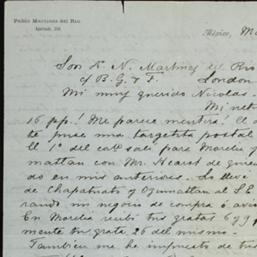 Pablo Martinez del Rio
Apartado, 234
México, Ma
Son Dn N. Martinez del Rio
c/o B. G. & F. London
Mi muy querido Nicolas.
Mi ret
16 ppp.! Me parece mentira! El
te puse una targetita postal
el 1º del cote sali para Morelia y
mattan con Mr. Hearst de quien
do en mis anteriores. Lo llevé
de Chapatuato y Ojumattan al
rando mi negocio de compra ó avio
En Morelia recibi tus gratas 6 y 9 p
mente tu grata 26 del mismo.
Tambien me he impuesto de tus